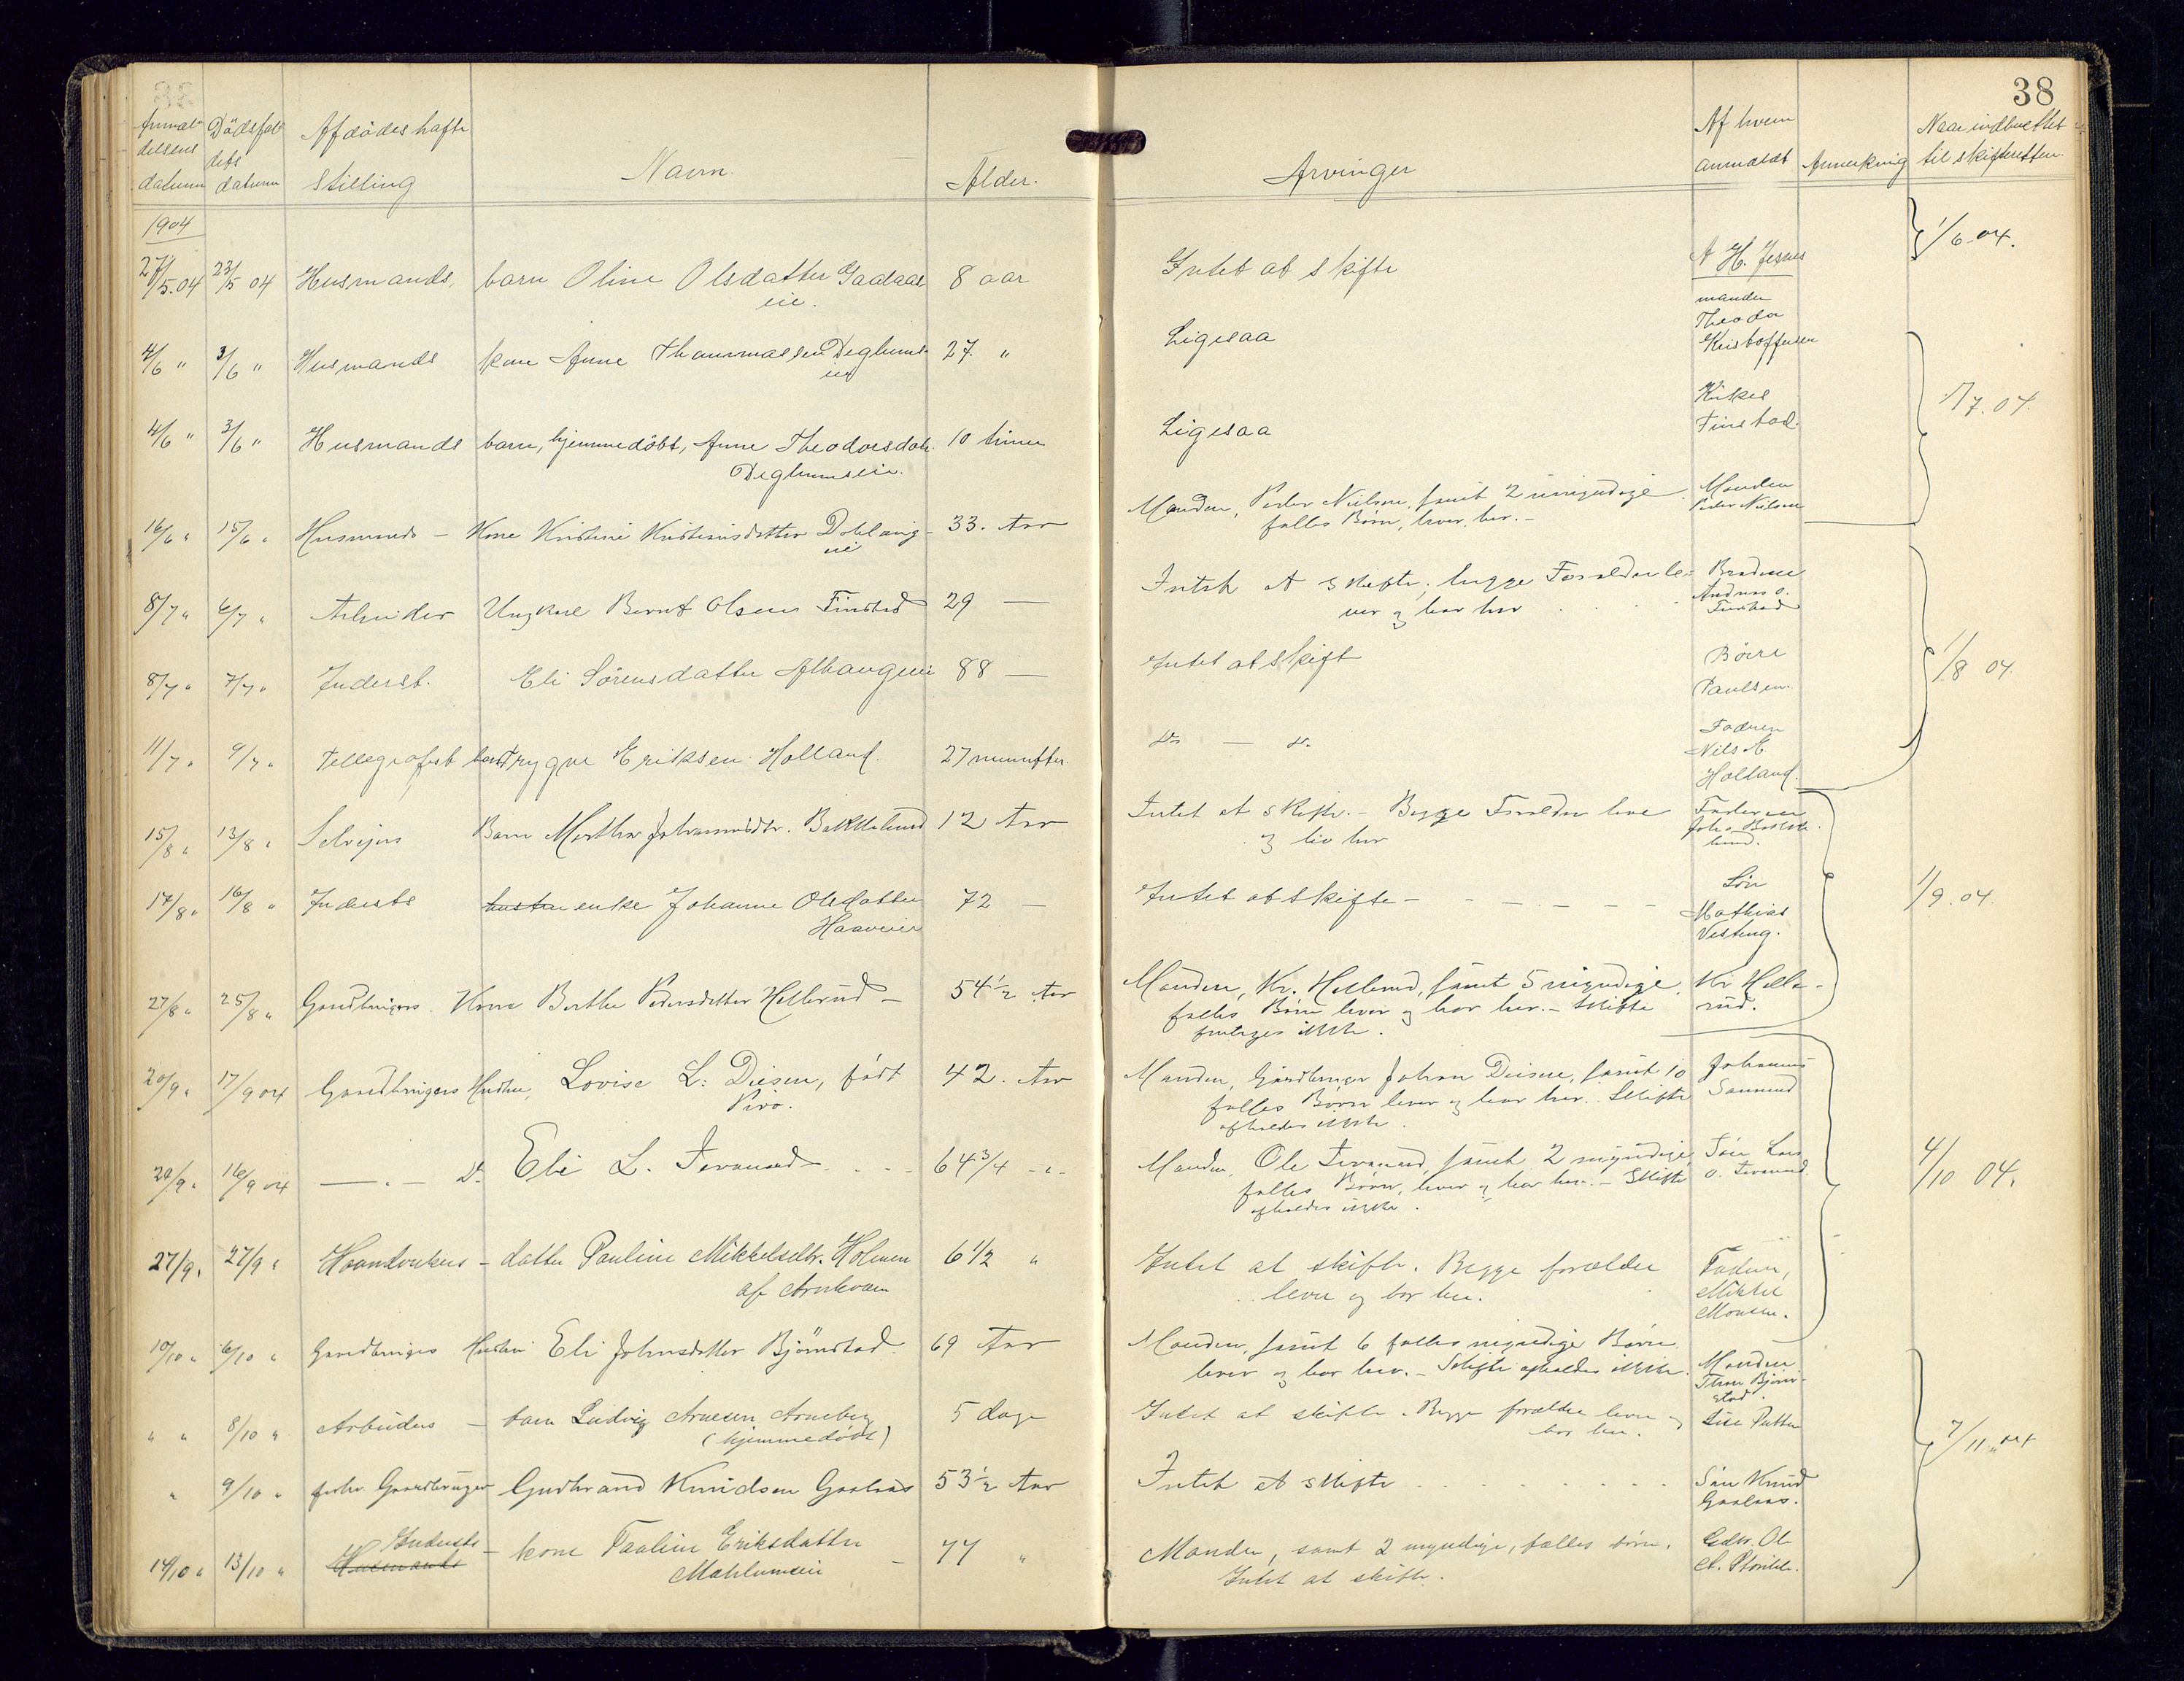 38
Anmel-
delsens
datum
Dödsfal-
dets
datum
Afdödes hafte
Stilling
Navn.
Alder.
Arvinger
Af hvem
anmeldt
Anmerkning
Naar indberettet
til skifteretten.
1904
27/5.04 23/5 04 Husmands, barn Oline Olsdatter Gaalaas 8 aar Intet at skifte A H. Jesnes 1/6 04.
eie.
4/6 " 3/6 " Husmands kone Anne Thommassen Deglums- 27 " Ligesaa manden
eie
Theodor
Kristoffersen
1/7.04.
4/6 " 3/6 " Husmands barn, hjemmedöbt, Anne Theodorsdatr. 10 timer Ligesaa
Deglumseie.
Finstad.
16/6 " 15/6 " Husmands - Kone Kristine Kristiansdatter 33. Aar Manden, Peder Nielsen, samt 2 umyndige Manden
eie
fælles Børn, lever her. - Peder Nielsen
8/7 " 6/7 " Arbeider Ungkarl Bernt Olsen Finstad 29 — Intet at Skifte, begge Forældre le-
ver og bor her
Andreas O.
Finstad
8/7 " 7/7 " Inderst. Eli Sörensdatter 88 — Intet at skifte
Paulsen.
1/8 04.
11/7 " 9/7 " Tellegrafist barn Trygve Eriksen Holland. 27 do — do. Faderen
Nils
Holland.
15/8 " 13/8 " Selveiers Barn Marthe Johannesdtr. Bakkelund 12 Aar Intet at skifte. - Begge Forældre leve Faderen
og bor her
17/8 " 16/8 " Inderst enke Johanne Olsdatter 72 — Intet at skifte - Sön
Haaveien
Mathias
1/9.04.
27/8 " 25/8 " Gaardbrugers Kone Berthe Pedersdatter Hellerud - 54 1/2 Aar Manden, Kr. Hellerud, samt 5 myndige Kr Helle-
fælles Børn lever og bor her. - Skifte rud.
foretages ikke.
20/9 " 17/9 04 Gaardbrugers Hustru, Lovise L: Diesen, født 42. Aar Manden, Gaardbruger Johan Diesen, samt 10 Johannes
fælles Børn lever og bor her. Skifte
afholdes ikke.
20/9 " 16/9 04 — " — Do. Eli L. 64 3/4 - " - Manden, Ole samt 2 myndige Søn Lars
fælles Børn, lever og bor her. - Skifte
afholdes ikke.
4/10 04.
27/9 " 27/9 " Haandverkers - datter Pauline Mikkelsdtr. Holmen 6 1/2 " Intet at skifte. Begge forældre Faderen,
af Arnkværn
lever og bor her.
Mikkel
Monsen.
10/10 " 6/10 " Gaardbrugers Hustru Eli Johnsdatter Bjørnstad 69 Aar Manden, samt 6 fælles myndige Børn
lever og bor her. - Skifte afholdes ikke. Manden
Bjørn-
stad.
" " 8/10 " Arbeiders - barn Ludvig Arnesen Arneberg 5 dage Intet at skifte. Begge forældre lever og
(hjemmedöbt)
bor her.
" 9/10 " forhv. Gaardbruger Gudbrand Knudsen Gaalaas 53 1/2 Aar Intet at skifte Søn Knud
Gaalaas.
7/11 04
14/10 " 13/10 " Husmands Inderste - kone Pauline Eriksdatter 77 " Manden, samt 2 myndige, fælles börn.
Mæhlumseie
Intet at skifte.